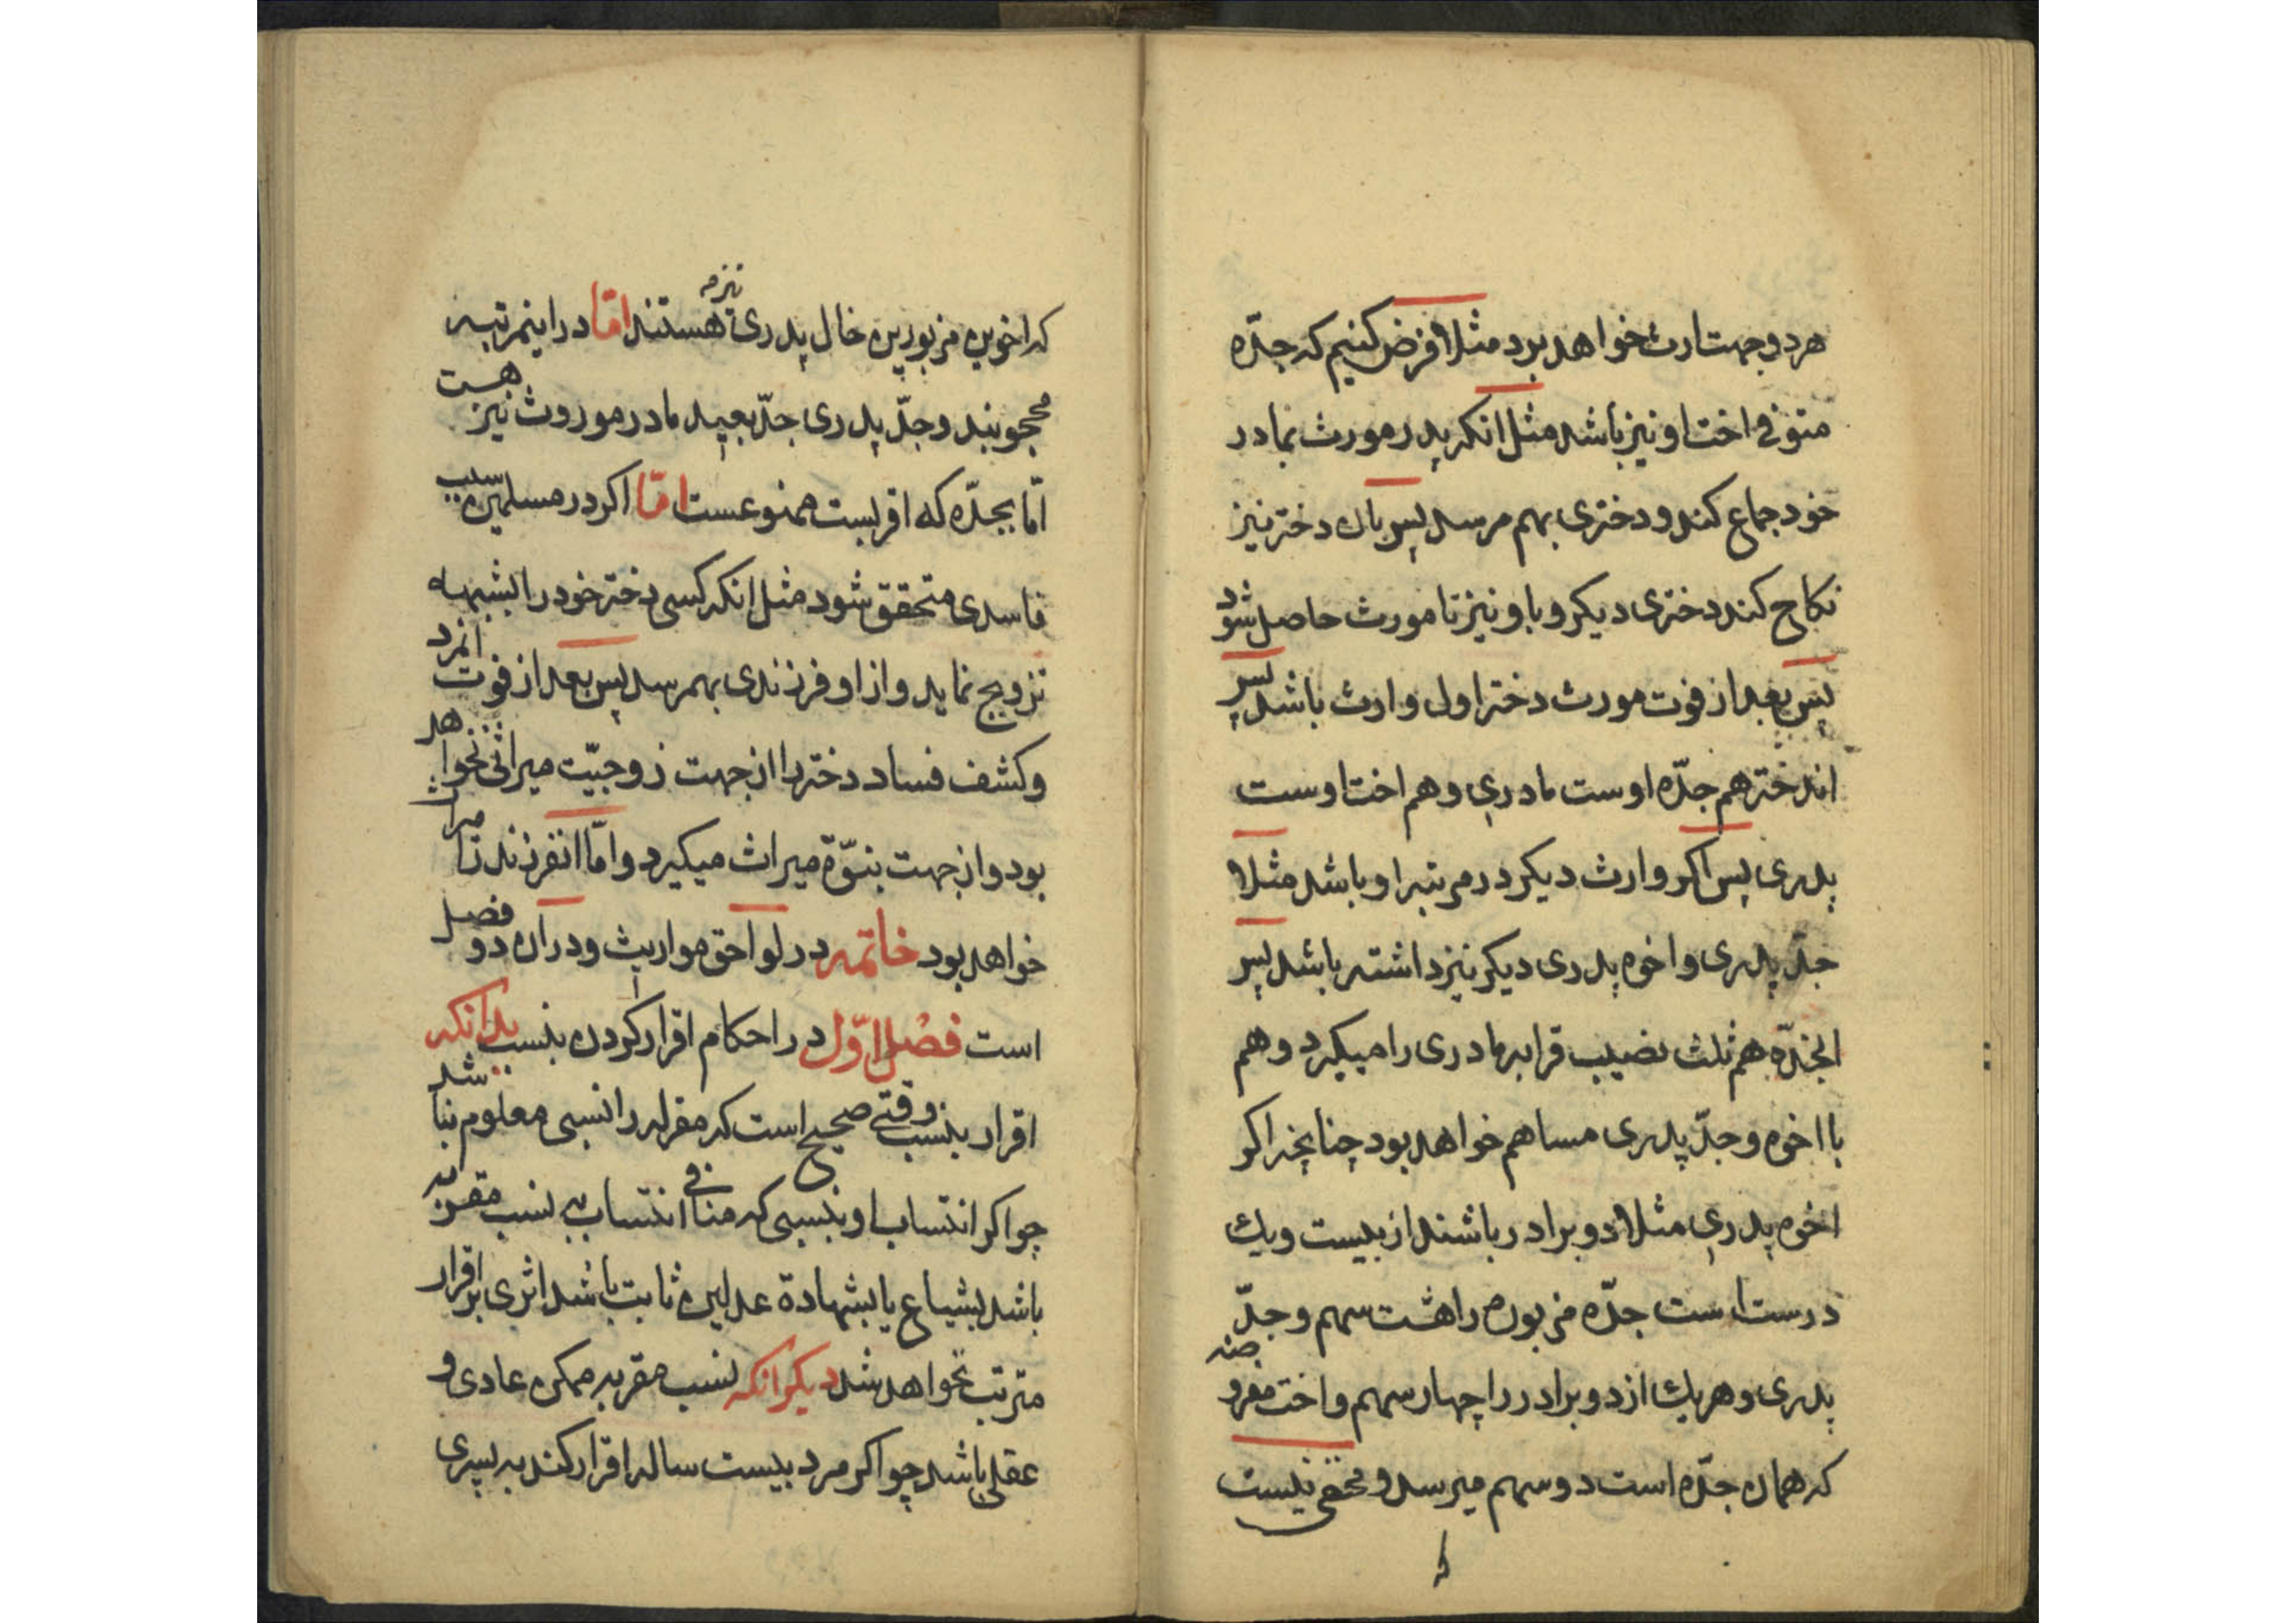 هر دو جهت ارث خواهد برد مثلا فرض کنیم که جدّه
متوفی اخت او نیز باشد مثل انکه پدر مورث بمادر
خود جماع کند و دختری بهم رسد پس بان دختر نیز
نکاح کند دختری دیکر و باو نیز تا مورث حاصل شود
پس بعد از فوت مورث دختر اول وارث باشد پس
اندختر هم جدّه اوست مادری و هم اخت اوست
پدری پس اکر وارث دیکر در مرتبه او باشد مثلا
جدّ پدری و اخوه پدری دیکر نیز داشته باشد پس
انجدّه هم ثلث نصیب قرابه مادری را میکیرد و هم
با اخوه و جدّ پدری مساهم خواهد بود چنانچه اکر
اخوه پدری مثلا دو برادر باشند از بیست و یك
درست است جدّه مزبوره را هشت سهم و جدّ
پدری و هر یك از دو برادر را چهار سهم و اخت مفروضه
که همان جدّه است دو سهم میرسد و مخفی نیست
که
که اخوین مزبورین خال پدری نیز هستند امّا در اینمرتبه
محجوبند و جدّ پدری جدّ بعید مادر موروث نیز هست
امّا بجدّه که اقربست ممنوعست امّا اکر در مسلمین سبب
فاسدی متحقق شود مثل انکه کسی دختر خود را بشبهه
تزویج نماید و از او فرزندی بهمرسد پس بعد از فوت انمرد
و کشف فساد دختر را از جهت زوجیّت میراثی نخواهد
بود و از جهت بنوّة میراث میکیرد و امّا انفرزند را میراث
خواهد بود خاتمه در لواحق مواریث و در ان دو فصل
است فصل اوّل در احکام اقرار کردن بنسب بدانکه
اقرار بنسب وقتی صحیح است که مقر له را نسبی معلوم نباشد
چو اکر انتساب او بنسبی که منافی انتساب به نسب مقر به
باشد بشیاع یا بشهادة عدلین ثابت باشد اثری بر اقرار
مترتب نخواهد شد دیکر انکه نسب مقر به ممکن عادی و
عقلی باشد چو اکر مرد بیست ساله اقرار کند به پسری